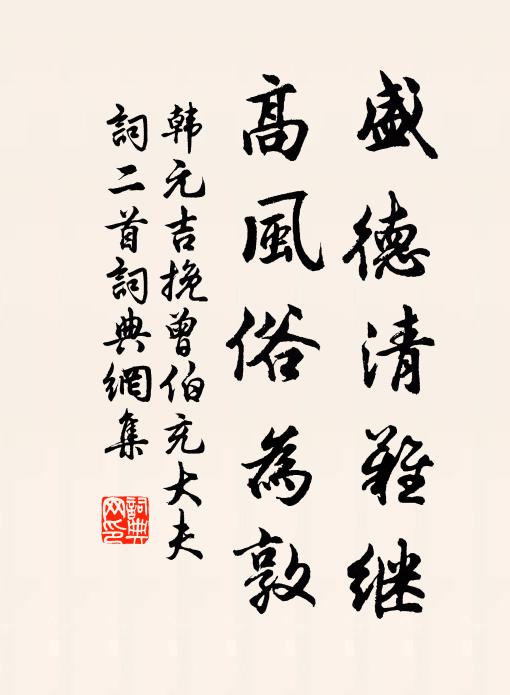 盛德清難继
高風俗為敦
韩元吉挽曾伯充大夫
詞二首詞典網集
詞典网印